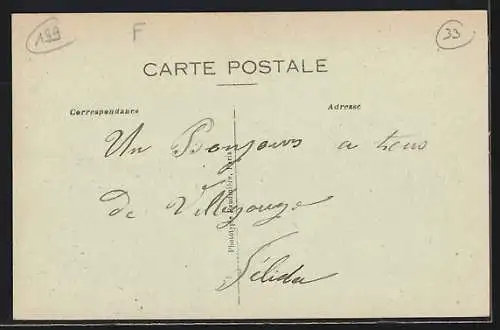 199 F 33
CARTE POSTALE
Correspondance Adresse
Un Bonjours a tous
de Villegouge
Félida
Phototypie Paris